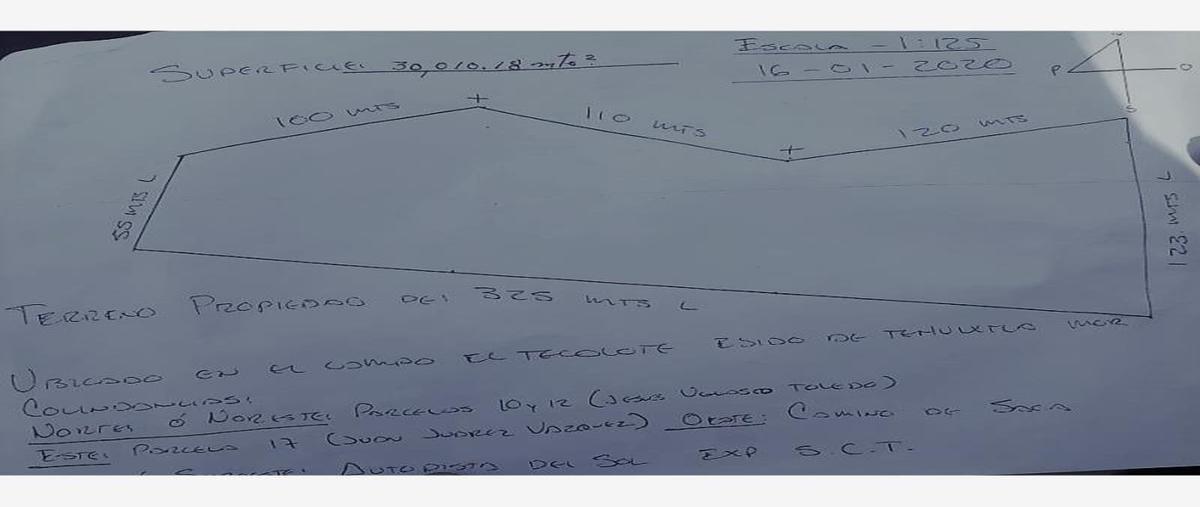 ESCALA - 1:125
SUPERFICIE: 30,010.18 mts²
16-01-2020
P O
S
100 MTS
110 MTS
120 MTS
55 MTS L
123 MTS L
TERRENO PROPIEDAD DE: 325 MTS L
UBICADO EN EL CAMPO EL TECOLOTE EJIDO DE TEHUIXTLA MOR
COLINDANCIAS:
NORTE ó NORESTE: PARCELAS 10 y 12 (JESUS VELASCO TOLEDO)
ESTE: PARCELA 17 (JUAN JUAREZ VAZQUEZ) OESTE: CAMINO DE SACA
AUTOPISTA DEL SOL EXP S.C.T.